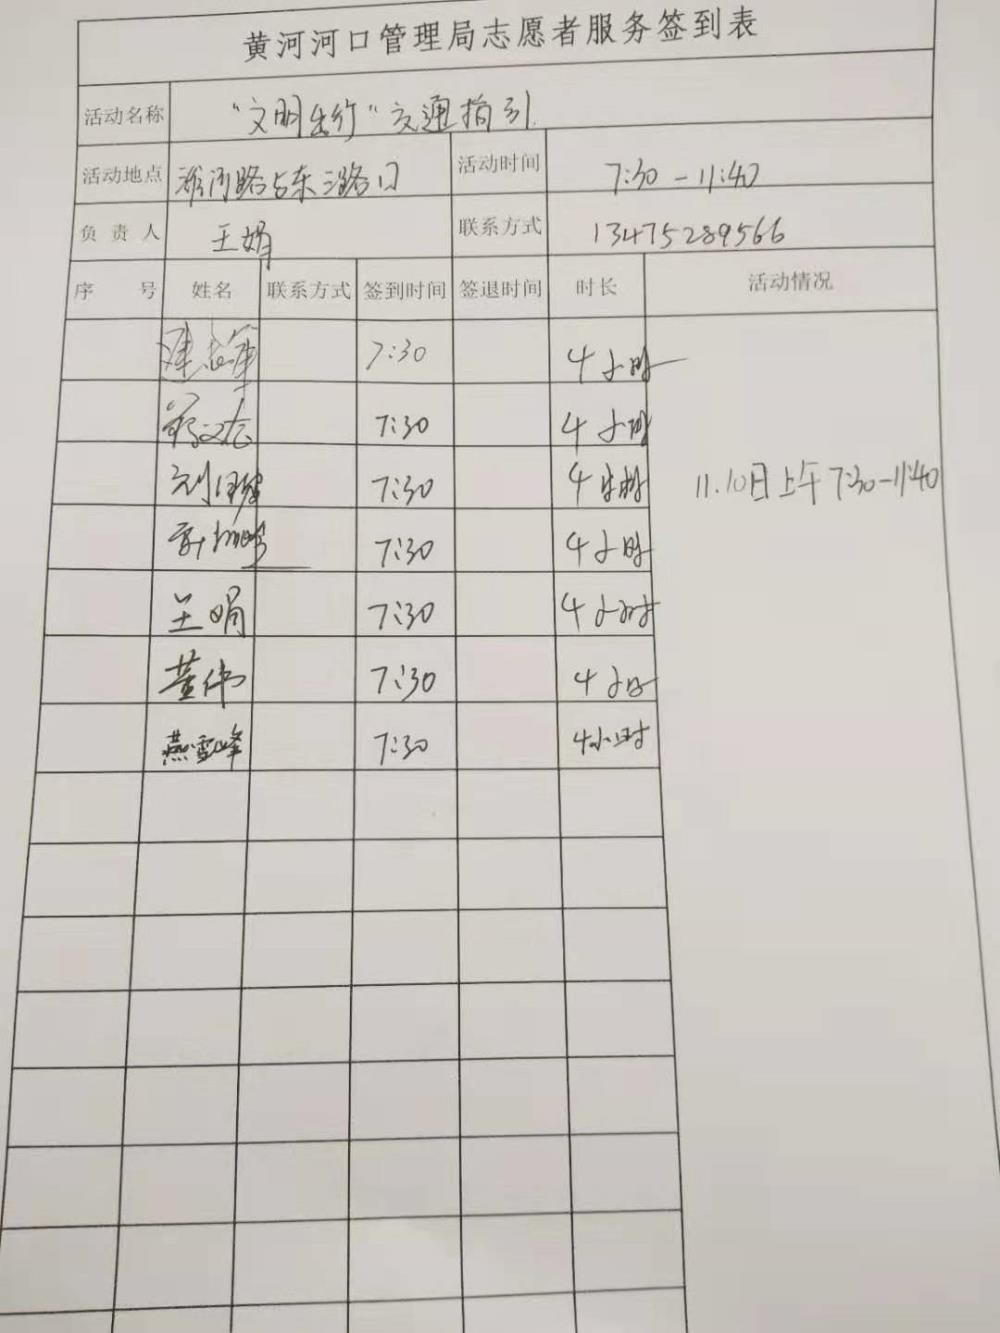 黄河河口管理局志愿者服务签到表
活动名称 "文明出行"交通指引
活动地点 路与东三路口 活动时间 7:30-11:40
负责人 王娟 联系方式 13475289566
序号 姓名 联系方式 签到时间 签退时间 时长 活动情况
7:30 4小时
7:30 4小时
刘 7:30 4小时 11.10日上午7:30-11:40
7:30 4小时
王娟 7:30 4小时
董伟 7:30 4小时
燕雪峰 7:30 4小时